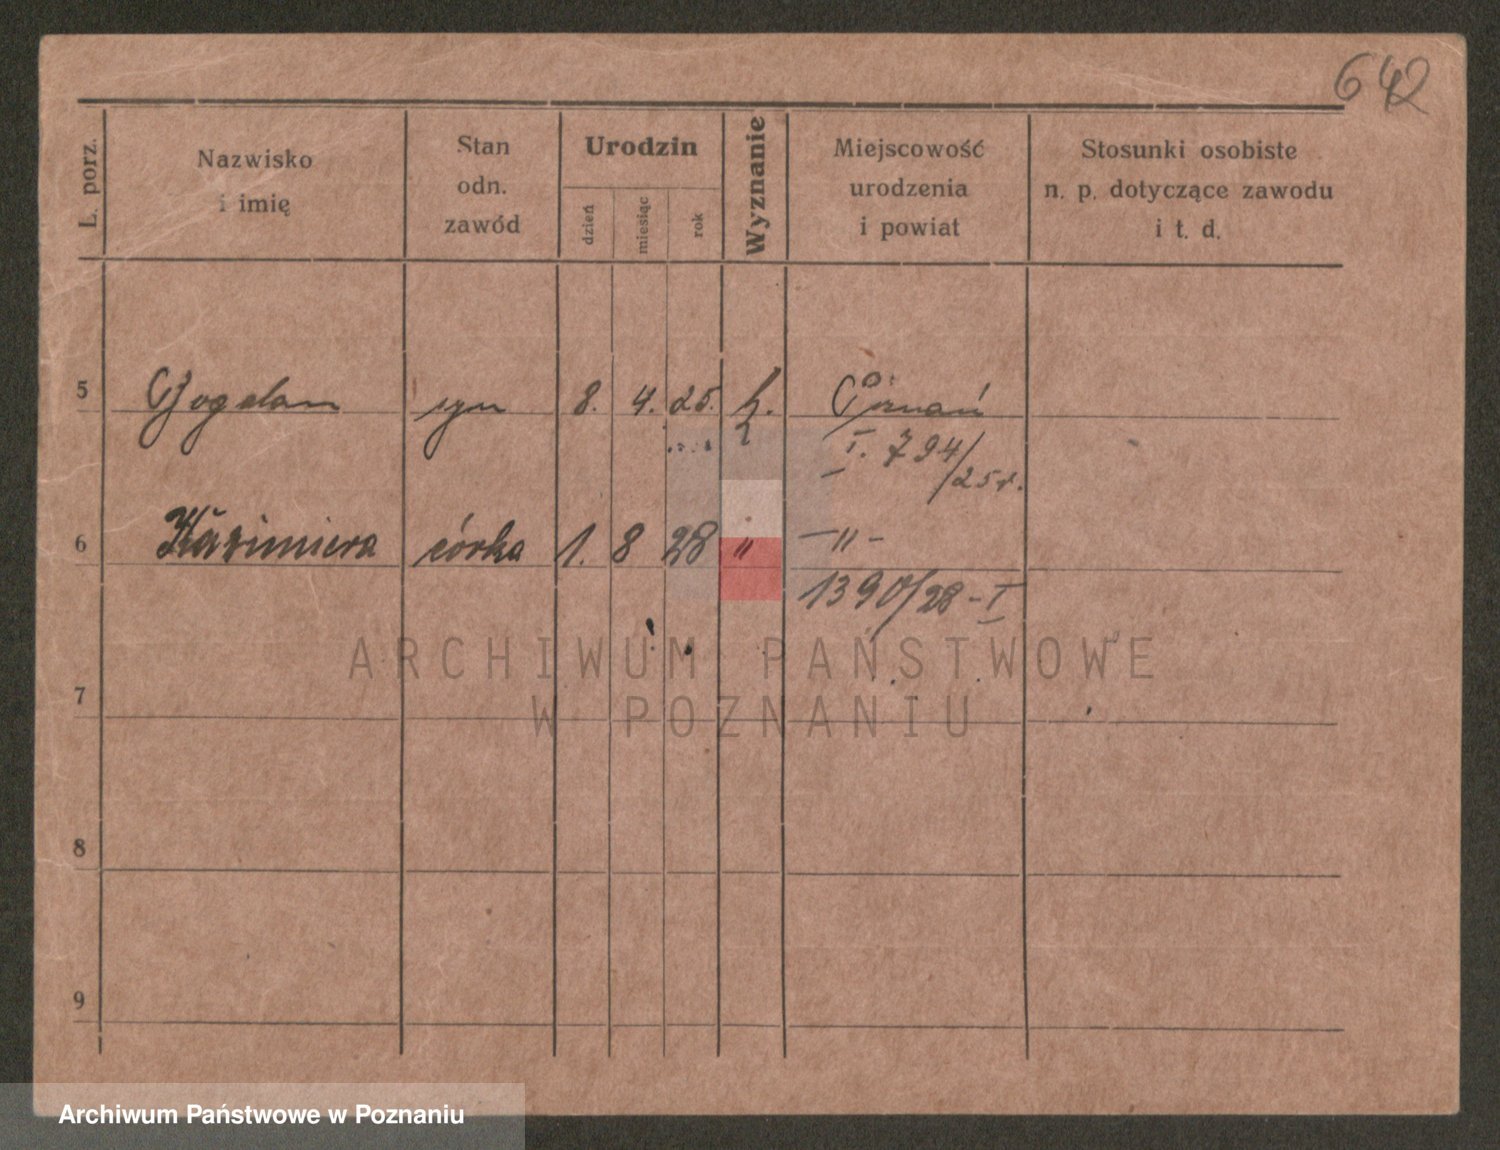 642
L. porz.
Nazwisko
i imię
Stan
odn.
zawód
Urodzin
dzień
miesiąc
rok
Wyznanie
Miejscowość
urodzenia
i powiat
Stosunki osobiste
n. p. dotyczące zawodu
i t. d.
5 syn 8. 4. 25. k. Poznań
I. 794/25 r.
6 Kazimiera córka 1. 8 28 " –"–
1390/28 - I
ARCHIWUM PAŃSTWOWE
W POZNANIU
7
8
9
Archiwum Państwowe w Poznaniu